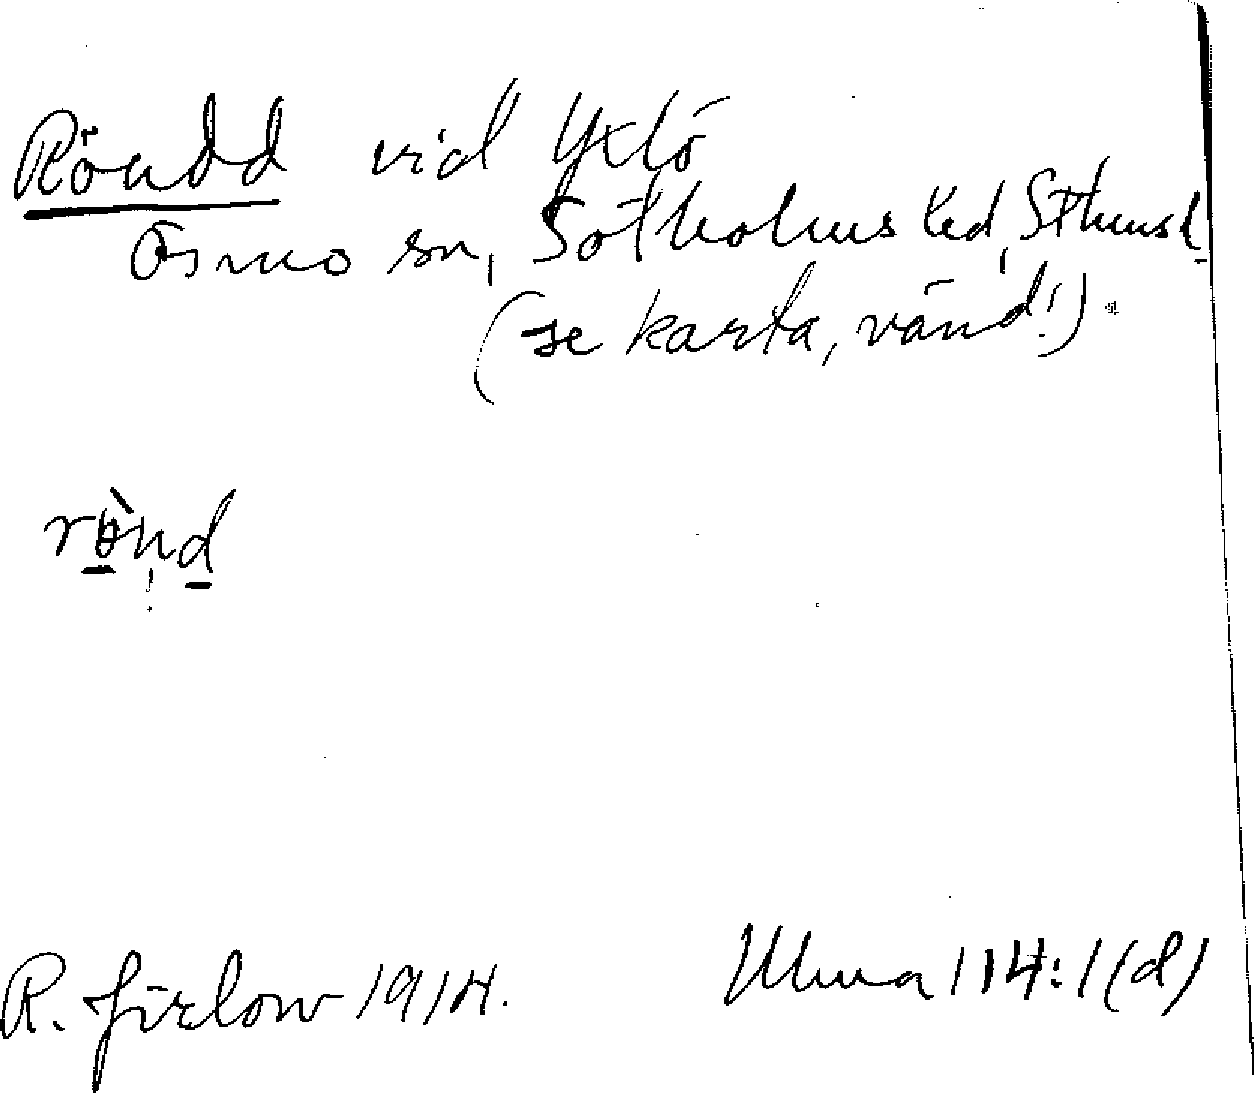 Röudd vid Yxlö
Ösmo sn, Sotholms hd, Sthms l.
(se karta, vänd!).
rö̀nd
R. Jirlow 1914.
Ulma 114:1(d)